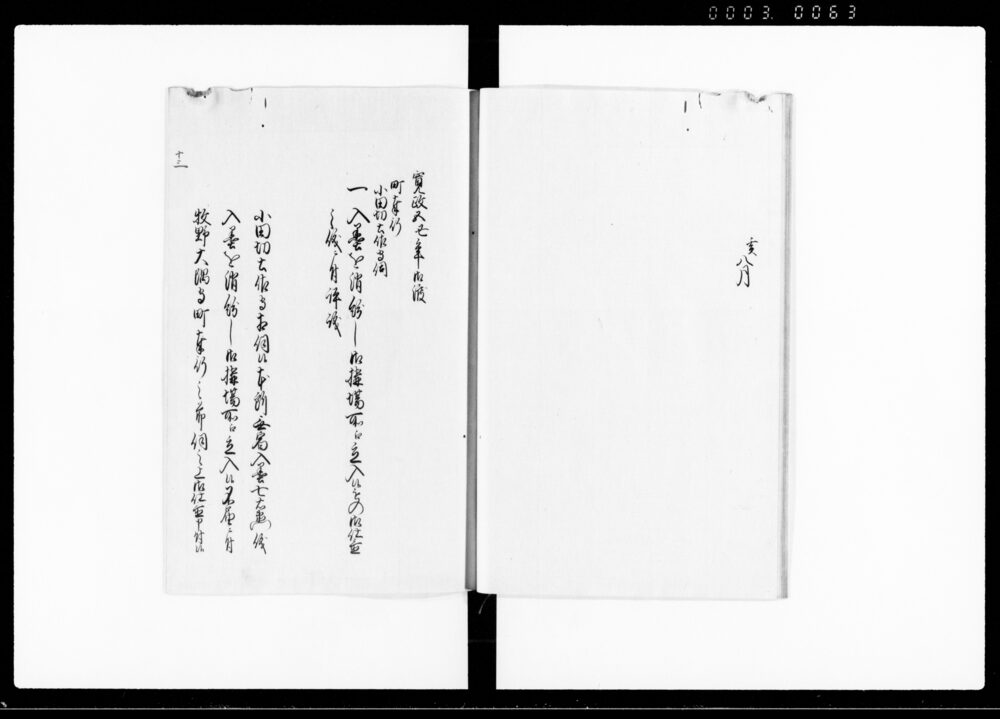 0003. 0063
亥八月
寛政五丑年御渡
町奉行
小田切土佐守伺
一入墨を消紛し御構場所江立入候もの御仕置
之儀ニ付評議
小田切土佐守相伺候本所無宿入墨七右衛門儀
入墨を消紛し御構場所江立入候不届ニ付
牧野大隅守町奉行之節伺之上御仕置申付候